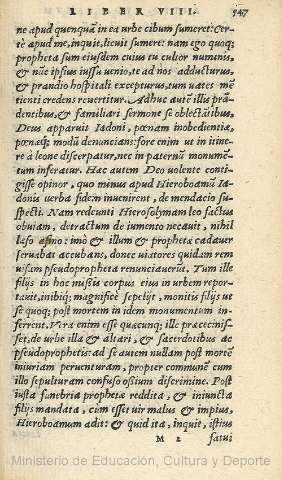 LIBER VIII. 547
ne apud quenquã in ea urbe cibum sumeret: Cer-
te apud me, inquit, licuit sumere: nam ego quoq;
propheta sum eiusdem cuius tu cultor numinis,
& nũc ipsius iussu uenio, te ad nos adducturus,
& prandio hospitali excepturus, tum uates men
tienti credens reuertitur. Adhuc autẽ illis prã-
dentibus, & familiari sermone se oblectãtibus,
Deus apparuit Iadoni, pœnam inobedientiæ,
pœnæq; modũ denuncians: fore enim ut in itine
re à leone discerpatur, nec in paternũ monumẽ-
tum inferatur. Hæc autem Deo uolente conti-
gisse opinor, quo minus apud Hieroboamũ Ia-
donis uerba fidem inuenirent, de mendacio su-
specti. Nam redeunti Hierosolymam leo factus
obuiam, detractum de iumento necauit, nihil
læso asino: imò & illum & prophetæ cadauer
seruabat accubans, donec uiatores quidam rem
uisam pseudoprophetæ renunciauerut. Tum ille
filijs in hoc missis corpus eius in urbem repor-
tauit, inibiq; magnificè sepelijt, monitis filijs ut
se quoq; post mortem in idem monumentum in-
ferrent. Vera enim esse quæcunq; ille præcecinis-
set, de urbe illa & altari, & sacerdotibus ac
pseudoprophetis: ad se autem nullam post mortẽ
iniuriam peruenturam, propter communẽ cum
illo sepulturam confuso ossium discrimine. Post
iusta funebria prophetæ reddita, & iniuncta
filijs mandata, cùm esset uir malus & impius,
Hieroboamum adit: & quid ita, inquit, istius
M 2 fatui
Ministerio de Educación, Cultura y Deporte